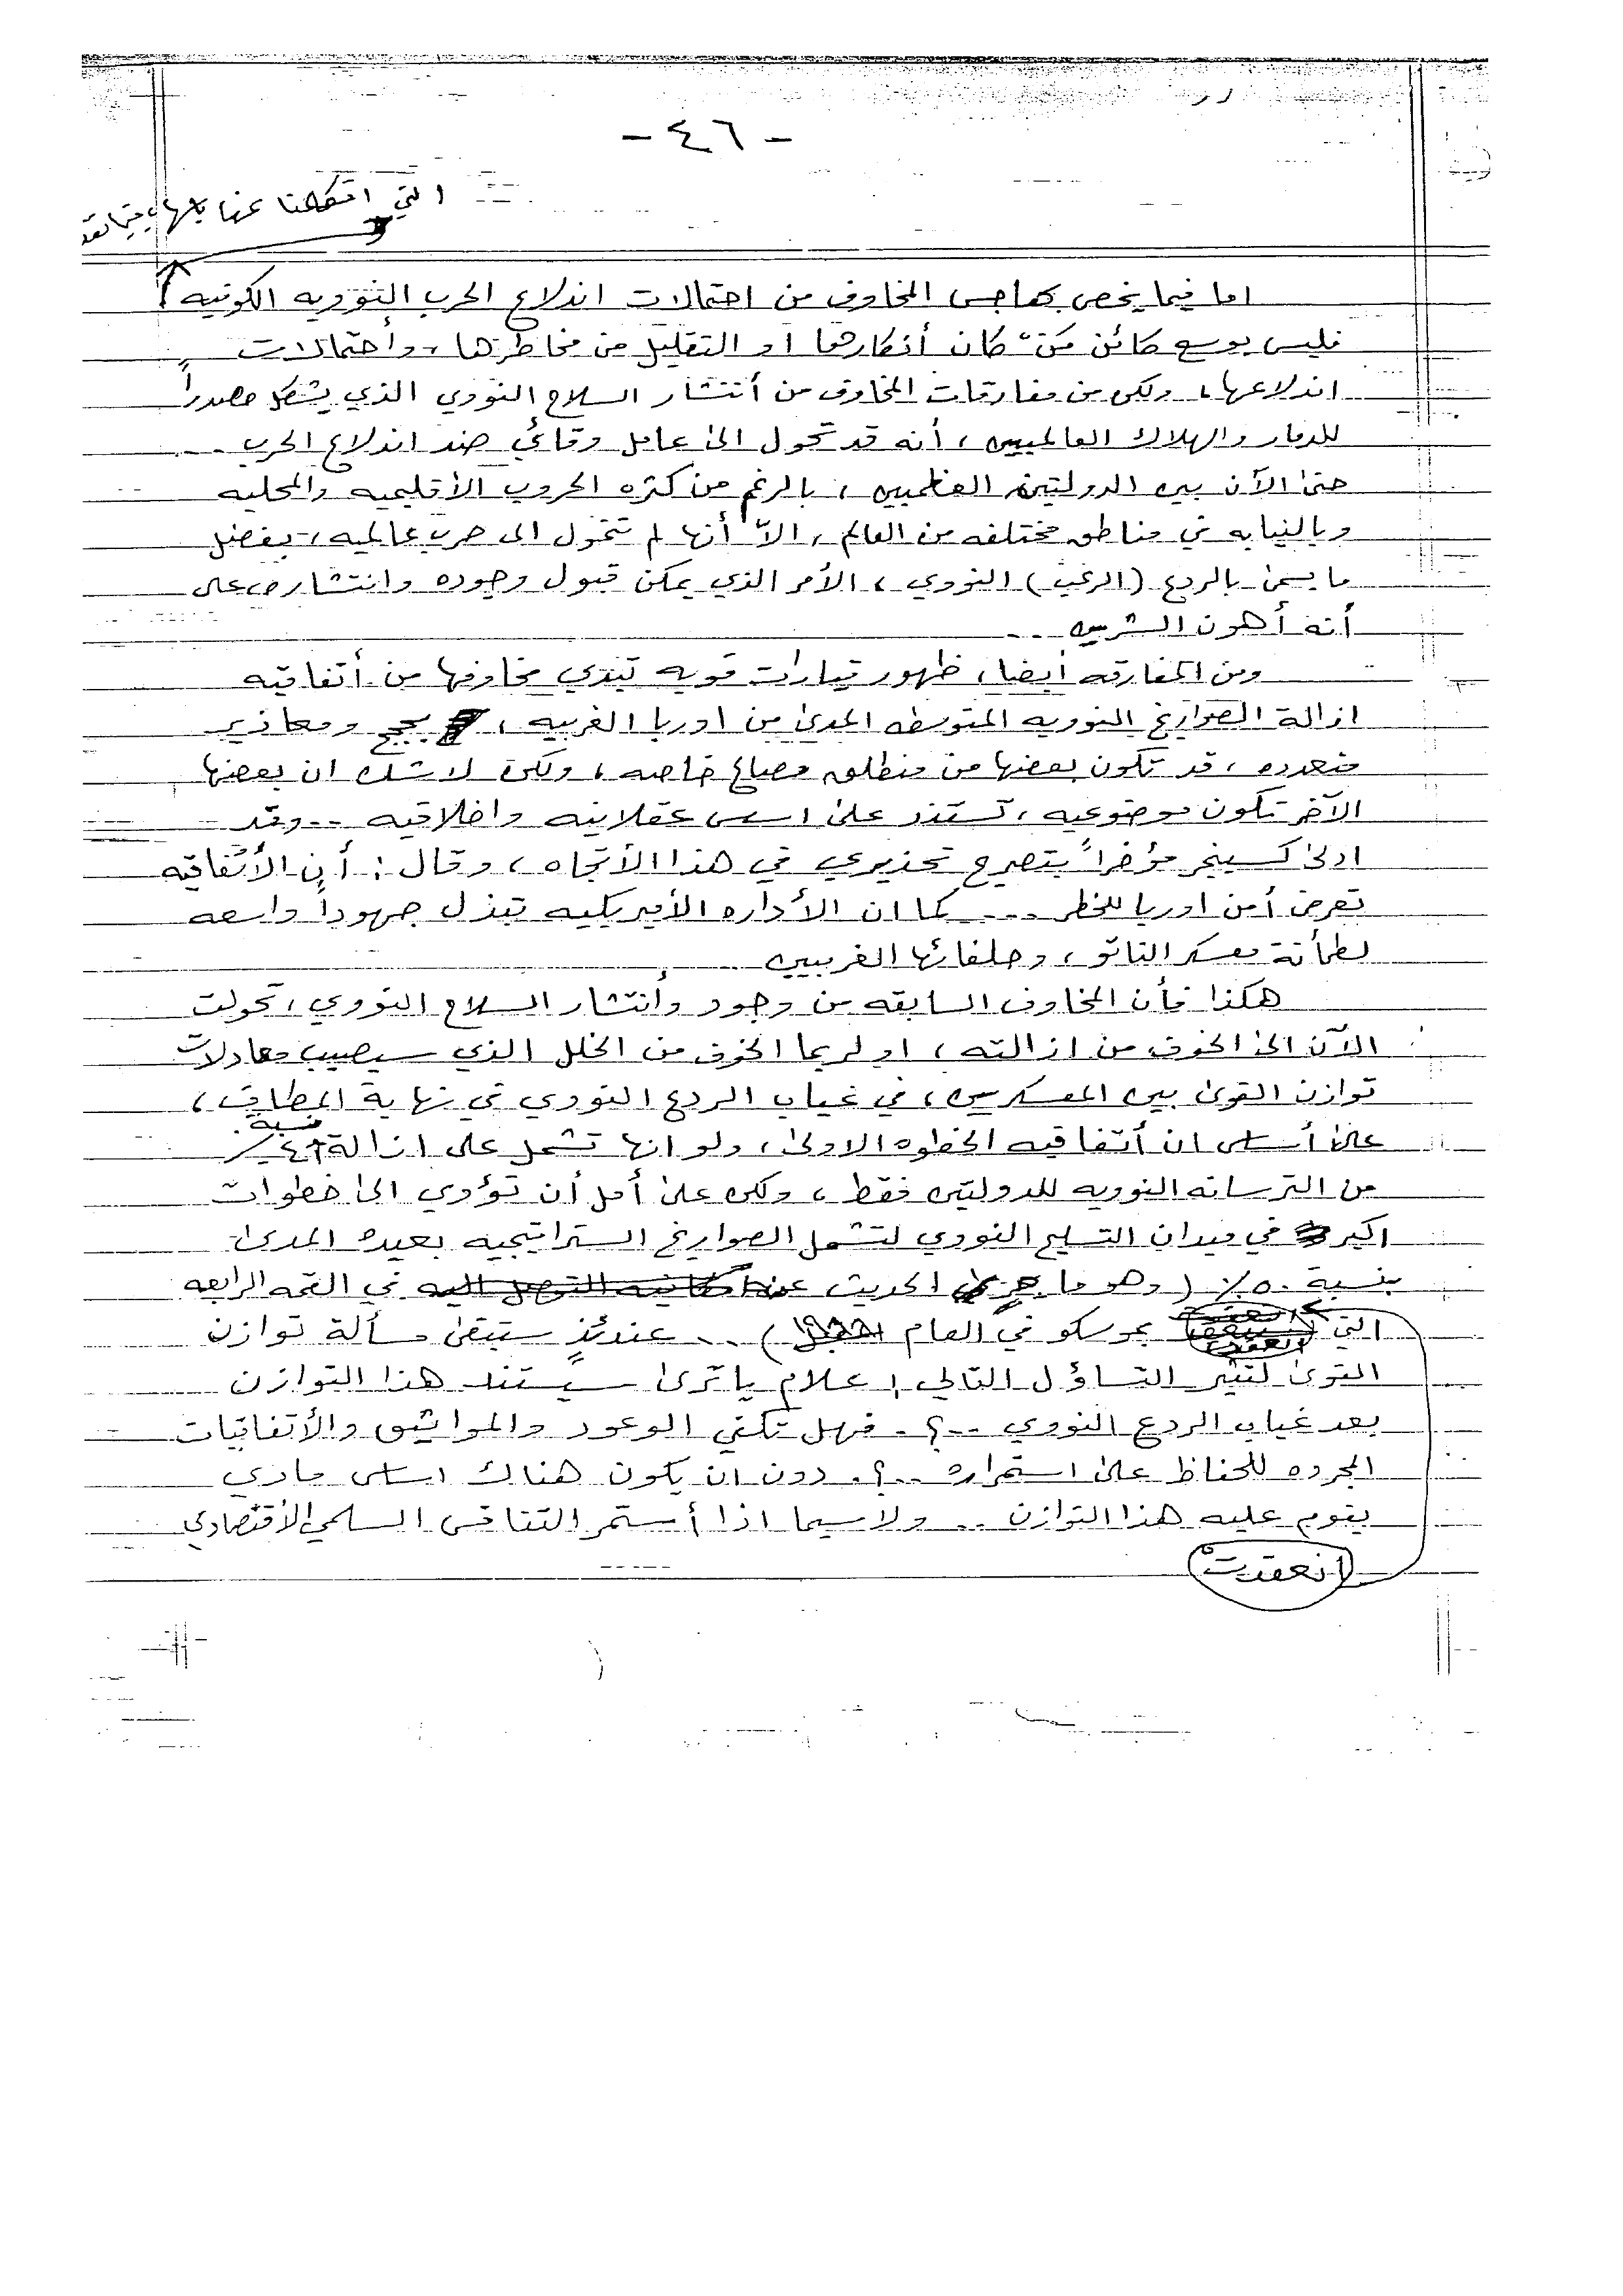 - ٤٦ -
التي
اما فيما يخص بهاجس المخاوف من احتمالات اندلاع الحرب النوويه الكونيه
فليس بوسع كائن مَنْ كان أنكارها او التقليل من مخاطرها، وأحتمالات
اندلاعها، ولكن من مفارقات المخاوف من أنتشار السلاح النووي الذي يشكل مصدراً
للدمار والهلاك العالميين، أنه قد تحول الى عامل وقائي ضد اندلاع الحرب ...
حتى الآن بين الدولتين العظميين، بالرغم من كثره الحروب الأقليميه والمحليه
وبالنيابه في مناطق مختلفه من العالم، الاّ أنها لم تتحول الى حرب عالميه، بفضل
ما يسمى بالردع (الرعب) النووي، الأمر الذي يمكن قبول وجوده وانتشاره على
أنه أهون الشرين ...
ومن المفارقه أيضا، ظهور تيارات قويه تبدي مخاوفها من أتفاقيه
ازالة الصواريخ النوويه المتوسطه المدى من اوربا الغربيه، بحجج ومعاذير
متعدده، قد تكون بعضها من منطلق مصالح خاصه، ولكن لا شك ان بعضها
الآخر تكون موضوعيه، تستند على اسس عقلانيه واخلاقيه .. وقد
ادلى كسينجر مؤخراً بتصريح تحذيري في هذا الأتجاه، وقال: أن الأتفاقيه
تعرض أمن اوربا للخطر ... كما ان الأداره الأميريكيه تبذل جهوداً واسعه
لطمأنة معسكر الناتو، وحلفائها الغربيين
هكذا فأن المخاوف السابقه من وجود وأنتشار السلاح النووي، تحولت
الآن الى الخوف من ازالته، او لربما الخوف من الخلل الذي سيصيب معادلات
توازن القوى بين المعسكرين، في غياب الردع النووي في نهاية المطاف،
على أساس ان أتفاقيه الخطوه الاولى، ولو انها تشمل على ازالة نسبة ٤٪
من الترسانه النوويه للدولتين فقط، ولكن على أمل أن تؤدي الى خطوات
اكبر في ميدان التسليح النووي لتشمل الصواريخ الستراتيجيه بعيده المدى
بنسبة ٥٠٪ (وهو ما جرى الحديث عنه في القمه الرابعه
التي بموسكو في العام) .. عندئذٍ ستبقى مسألة توازن
القوى لتثير التساؤل التالي: علام يا ترى سيستند هذا التوازن
بعد غياب الردع النووي ..؟. فهل تكفي الوعود والمواثيق والأتفاقيات
المجرده للحفاظ على استمراره ..؟. دون ان يكون هناك اساس مادي
يقوم عليه هذا التوازن .. ولاسيما اذا أستمر التنافس السلمي الأقتصادي
انعقدت